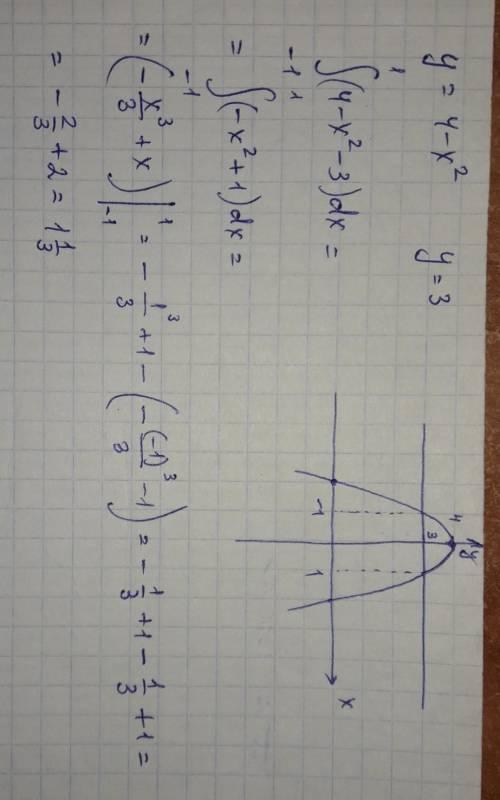 y = 4-x² y = 3
∫₋₁¹(4-x²-3)dx =
= ∫₋₁¹(-x²+1)dx =
= (-x³/3 + x)|₋₁¹ = -1³/3 + 1 - (-(-1)³/3 - 1) = -1/3 + 1 - 1/3 + 1 =
= -2/3 + 2 = 1 1/3
y
4
3
-1 1 x